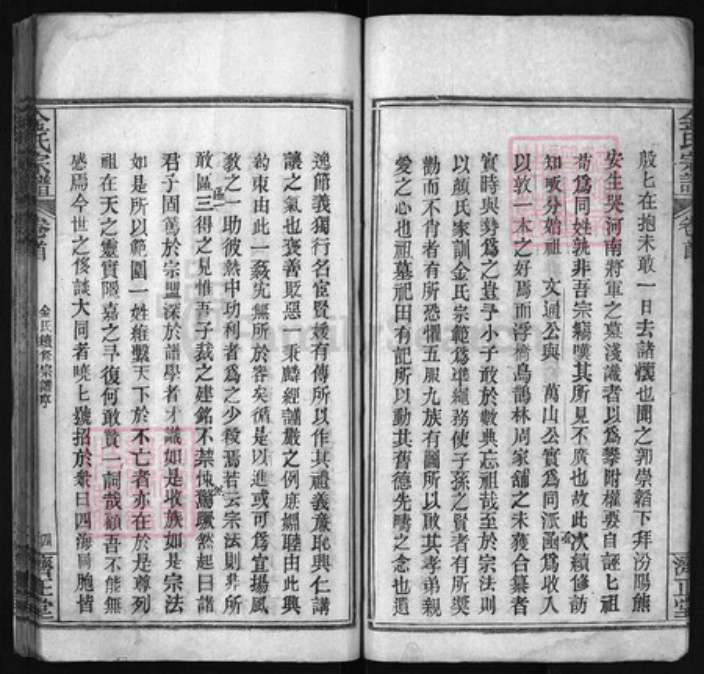 殷匕在抱未敢一日去諸懷也聞之郭崇韜下拜汾陽熊
安生哭河南將軍之墓淺識者以爲攀附權要自誣匕祖
苟爲同姓孰非吾宗竊嘆其所見不廣也故此次續修訪
知畈分始祖 文通公與 萬山公實爲同派亟爲收入
以敦一本之好焉而浮橋烏鵲林周家舖之未獲合纂者
實時與勢爲之豈予小子敢於數典忘祖哉至於宗法則
以顏氏家訓金氏宗範爲準繩務使子孫之賢者有所奬
勸而不肖者有所恐懼五服九族有圖所以啟其孝弟親
愛之心也祖墓祀田有記所以動其舊德先疇之念也遺
逸節義獨行名宦賢媛有傳所以作其禮義廉恥興仁講
讓之氣也褒善貶惡一秉麟經謹嚴之例庶嫺睦由此興
約束由此一姦宄無所於容矣循是以進或可爲宜揚風
教之一助彼熱中功利者爲之少稜焉若云宗法則非所
敢區三得之見惟吾子裁之建銘不禁悚驚驟然起曰諸
君子固篤於宗盟深於譜學者才識如是收族如是宗法
如是所以範圍一姓維繫天下於不亡者亦在於是尊列
祖在天之靈實隱嘉之予復何敢贊一詞哉顧吾不能無
感焉今世之侈談大同者曉匕號招於衆曰四海同胞皆
金氏宗譜
卷首
金氏續修宗譜序
四
濟正堂
金氏宗譜
卷首
濟正堂